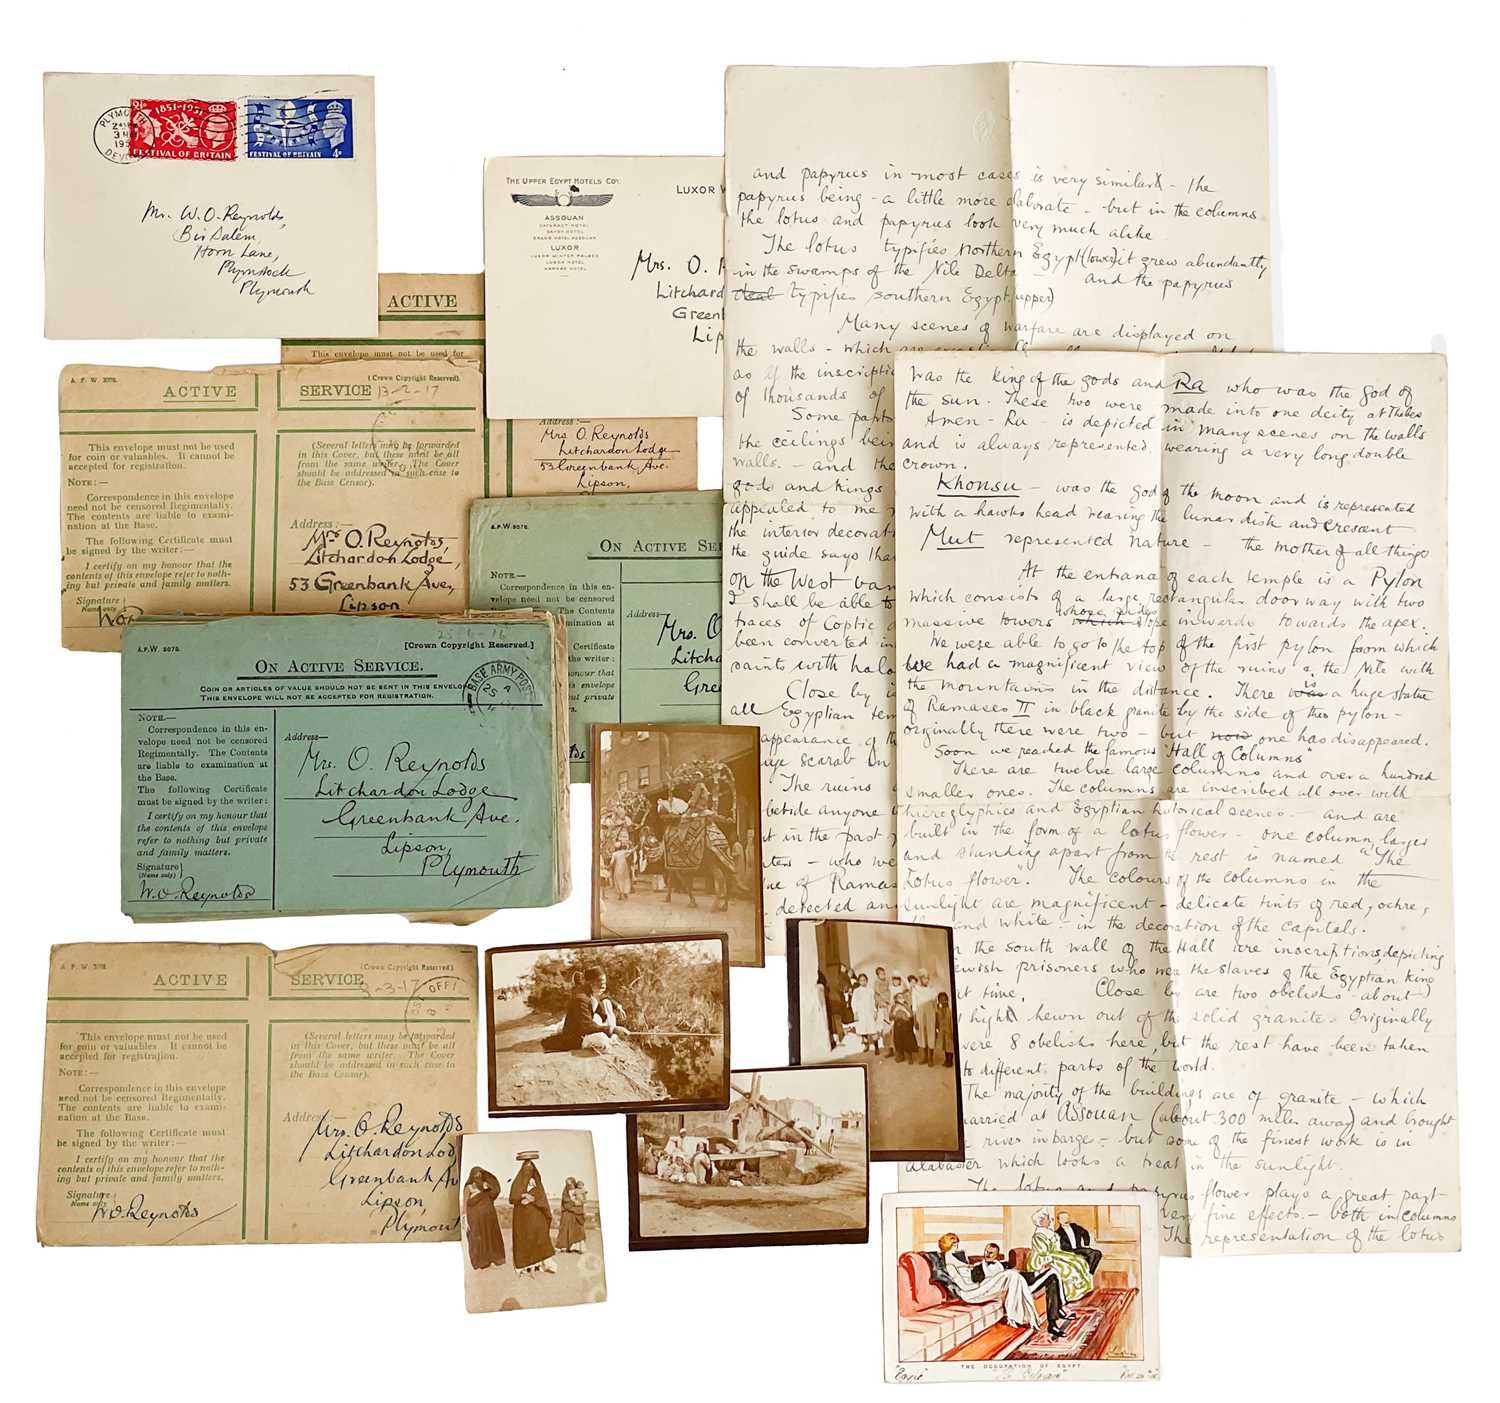 PLYMOUTH
DEVON
2½
1851-1951
FESTIVAL OF BRITAIN
FESTIVAL OF BRITAIN 4D
Mr. W. O. Reynolds
"Bir Salem"
Horn Lane,
Plymstock
Plymouth
ACTIVE
This envelope must not be used for
THE UPPER EGYPT HOTELS COY.
ASSOUAN
CATARACT HOTEL
SAVOY HOTEL
GRAND HOTEL ASSOUAN
LUXOR
LUXOR WINTER PALACE
LUXOR HOTEL
KARNAK HOTEL
LUXOR W
Mrs. O. R
Litchard
Green
Lips
A. F. W. 3078.
ACTIVE SERVICE
(Crown Copyright Reserved)
13-2-17
This envelope must not be used
for coin or valuables. It cannot be
accepted for registration.
NOTE:—
Correspondence in this envelope
need not be censored Regimentally.
The contents are liable to exami-
nation at the Base.
The following Certificate must
be signed by the writer:—
I certify on my honour that the
contents of this envelope refer to noth-
ing but private and family matters.
Signature
Name only
(Several letters may be forwarded
in this Cover, but these must be all
from the same writer. The Cover
should be addressed in such case to
the Base Censor).
Address:—
Mrs O. Reynolds,
Litchardon Lodge,
53 Greenbank Ave,
Lipson
Address:—
Mrs O. Reynolds
Litchardon Lodge
53 Greenbank Ave.
Lipson,
A.F.W. 3078.
ON ACTIVE SE
NOTE.—
Correspondence in this en-
velope need not be censored
Address
Mrs. O
Litcha
Gre
A.F.W. 3078.
25-4-16
[Crown Copyright Reserved.]
ON ACTIVE SERVICE.
COIN OR ARTICLES OF VALUE SHOULD NOT BE SENT IN THIS ENVELOPE
THIS ENVELOPE WILL NOT BE ACCEPTED FOR REGISTRATION.
BASE ARMY POS
NOTE.—
Correspondence in this en-
velope need not be censored
Regimentally. The Contents
are liable to examination at
the Base.
The following Certificate
must be signed by the writer:
I certify on my honour that
the contents of this envelope
refer to nothing but private
and family matters.
Signature
(Name only)
W.O. Reynolds
Address—
Mrs. O. Reynolds
Litchardon Lodge
Greenbank Ave.
Lipson,
Plymouth
A. F. W. 3078.
ACTIVE SERVICE
(Crown Copyright Reserved)
3-3-17
This envelope must not be used
for coin or valuables. It cannot be
accepted for registration.
NOTE:—
Correspondence in this envelope
need not be censored Regimentally.
The contents are liable to exami-
nation at the Base.
The following Certificate must
be signed by the writer:—
I certify on my honour that the
contents of this envelope refer to noth-
ing but private and family matters.
Signature
Name only
W.O. Reynolds
(Several letters may be forwarded
in this Cover, but these must be all
from the same writer. The Cover
should be addressed in such case to
the Base Censor).
Address:—
Mrs. O. Reynolds
Litchardon Lod
Greenbank Av
Lipson,
Plymout
and papyrus in most cases is very similar - the
papyrus being - a little more elaborate - but in the columns
the lotus and papyrus look very much alike
The lotus typifies northern Egypt (lower) it grew abundantly
in the swamps of the Nile Delta - and the papyrus
typifies southern Egypt (upper)
Many scenes of warfare are displayed on
the walls - which are
as if the inscripti
of thousands of
Some parts
the ceilings bein
walls. - and the
gods and kings
appealed to me
the interior decorat
the guide says the
on the West
I shall be able to
traces of Coptic
been converted in
saints with halo
Close by i
all Egyptian tem
appearance of th
scarab on
The ruins
beside anyone
in the past
who we
of Ramas
detected an
was the king of the gods and Ra who was the god of
the sun. These two were made into one deity at Thebes
Amen-Ra - is depicted in many scenes on the walls
and is always represented, wearing a very long double
crown.
Khonsu - was the god of the moon and is represented
with a hawks head wearing the lunar disk and crescent
Mut represented nature - the mother of all things
At the entrance of each temple is a Pylon
which consists of a large rectangular doorway with two
massive towers whose sides slope inwards towards the apex.
We were able to go to the top of the first pylon from which
we had a magnificent view of the ruins & the Nile with
the mountains in the distance. There is a huge statue
of Ramases II in black granite by the side of this pylon -
originally there were two - but now one has disappeared.
Soon we reached the famous "Hall of Columns"
There are twelve large columns and over a hundred
smaller ones. The columns are inscribed all over with
hieroglyphics and Egyptian historical scenes - and are
built in the form of a lotus flower - one column, larger
and standing apart from the rest is named "The
Lotus flower". The colours of the columns in the
sunlight are magnificent - delicate tints of red, ochre,
and white - in the decoration of the capitals.
the south wall of the Hall are inscriptions, depicting
ewish prisoners who were the slaves of the Egyptian king
time. Close by are two obelisks - about
high hewn out of the solid granite. Originally
were 8 obelisks here, but the rest have been taken
to different parts of the world.
The majority of the buildings are of granite - which
arried at Assouan (about 300 miles away) and brought
river in barge - but some of the finest work is in
alabaster which looks a treat in the sunlight.
The lotus and papyrus flower plays a great part
very fine effects. - both in columns
The representation of the lotus
THE OCCUPATION OF EGYPT.